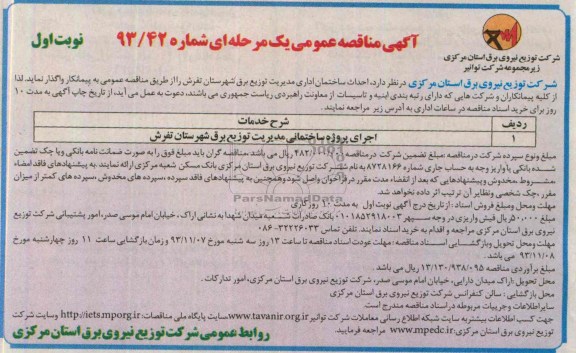 آگهی مناقصه عمومی یک مرحله ای شماره ۹۳/۴۲
نوبت اول
شرکت توزیع نیروی برق استان مرکزی
زیرمجموعه شرکت توانیر
شرکت توزیع نیروی برق استان مرکزی در نظر دارد، احداث ساختمان اداری مدیریت توزیع برق شهرستان تفرش را از طریق مناقصه عمومی به پیمانکار واگذار نماید. لذا
از کلیه پیمانکاران و شرکت هایی که دارای رتبه بندی ابنیه و تاسیسات از معاونت راهبردی ریاست جمهوری می باشند، دعوت به عمل می آید، از تاریخ چاپ آگهی به مدت ۱۰
روز برای خرید اسناد مناقصه در ساعات اداری به آدرس زیر مراجعه نمایند.
ردیف شرح خدمات
۱ اجرای پروژه ساختمانی مدیریت توزیع برق شهرستان تفرش
مبلغ و نوع سپرده شرکت در مناقصه: مبلغ تضمین شرکت در مناقصه ریال می باشد. مناقصه گران باید مبلغ فوق را به صورت ضمانت نامه بانکی و یا چک تضمین
شده بانکی یا واریز وجه به حساب جاری شماره ۸۷۲۸۱۶۶ به نام شرکت توزیع نیروی برق استان مرکزی بانک مسکن شعبه مرکزی ارائه نمایند. به پیشنهادهای فاقد امضاء
، مشروط، مخدوش و پیشنهادهایی که بعد از انقضاء مدت مقرر در فراخوان واصل شود و همچنین به پیشنهادهای فاقد سپرده، سپرده های مخدوش، سپرده های کمتر از میزان
مقرر، چک شخصی و نظایر آن ترتیب اثر داده نخواهد شد.
مهلت محل و مبلغ فروش اسناد : از تاریخ درج آگهی نوبت اول به مدت ۱۰ روز کاری
مبلغ ۵۰۰,۰۰۰ ریال فیش واریزی در وجه سپهر ۰۱۰۱۸۵۲۹۱۸۰۰۳ بانک صادرات شعبه میدان شهدا به نشانی اراک ، خیابان امام موسی صدر، امور پشتیبانی شرکت توزیع
نیروی برق استان مرکزی مراجعه و اقدام به خرید اسناد نمایند. تلفن تماس ۳۳۲۲۶۰۳۳-۰۸۶
مهلت محل تحویل و بازگشایی اسناد مناقصه: مهلت عودت اسناد مناقصه تا ساعت ۱۳ روز سه شنبه مورخ ۹۳/۱۱/۰۷ و زمان بازگشایی ساعت ۱۱ روز چهارشنبه مورخ
۹۳/۱۱/۰۸ می باشد .
مبلغ برآوردی مناقصه ۱۳/۱۳۰/۹۳۸/۰۹۵ ریال می باشد.
محل تحویل :اراک میدان دارایی، خیابان امام موسی صدر، شرکت توزیع نیروی برق استان مرکزی، امور تدارکات.
محل بازگشایی : سالن کنفرانس شرکت توزیع نیروی برق استان مرکزی
سایر اطلاعات و جزییات مربوطه در اسناد مناقصه مندرج است
جهت کسب اطلاعات بیشتر به سایت شبکه اطلاع رسانی معاملات شرکت توانیر www.tavanir.org.ir سایت پایگاه ملی مناقصات: http://iets.mporg.ir وسایت شرکت
توزیع نیروی برق استان مرکزی: www.mpedc.ir مراجعه فرمایید.
روابط عمومی شرکت توزیع نیروی برق استان مرکزی
ParsNamadData